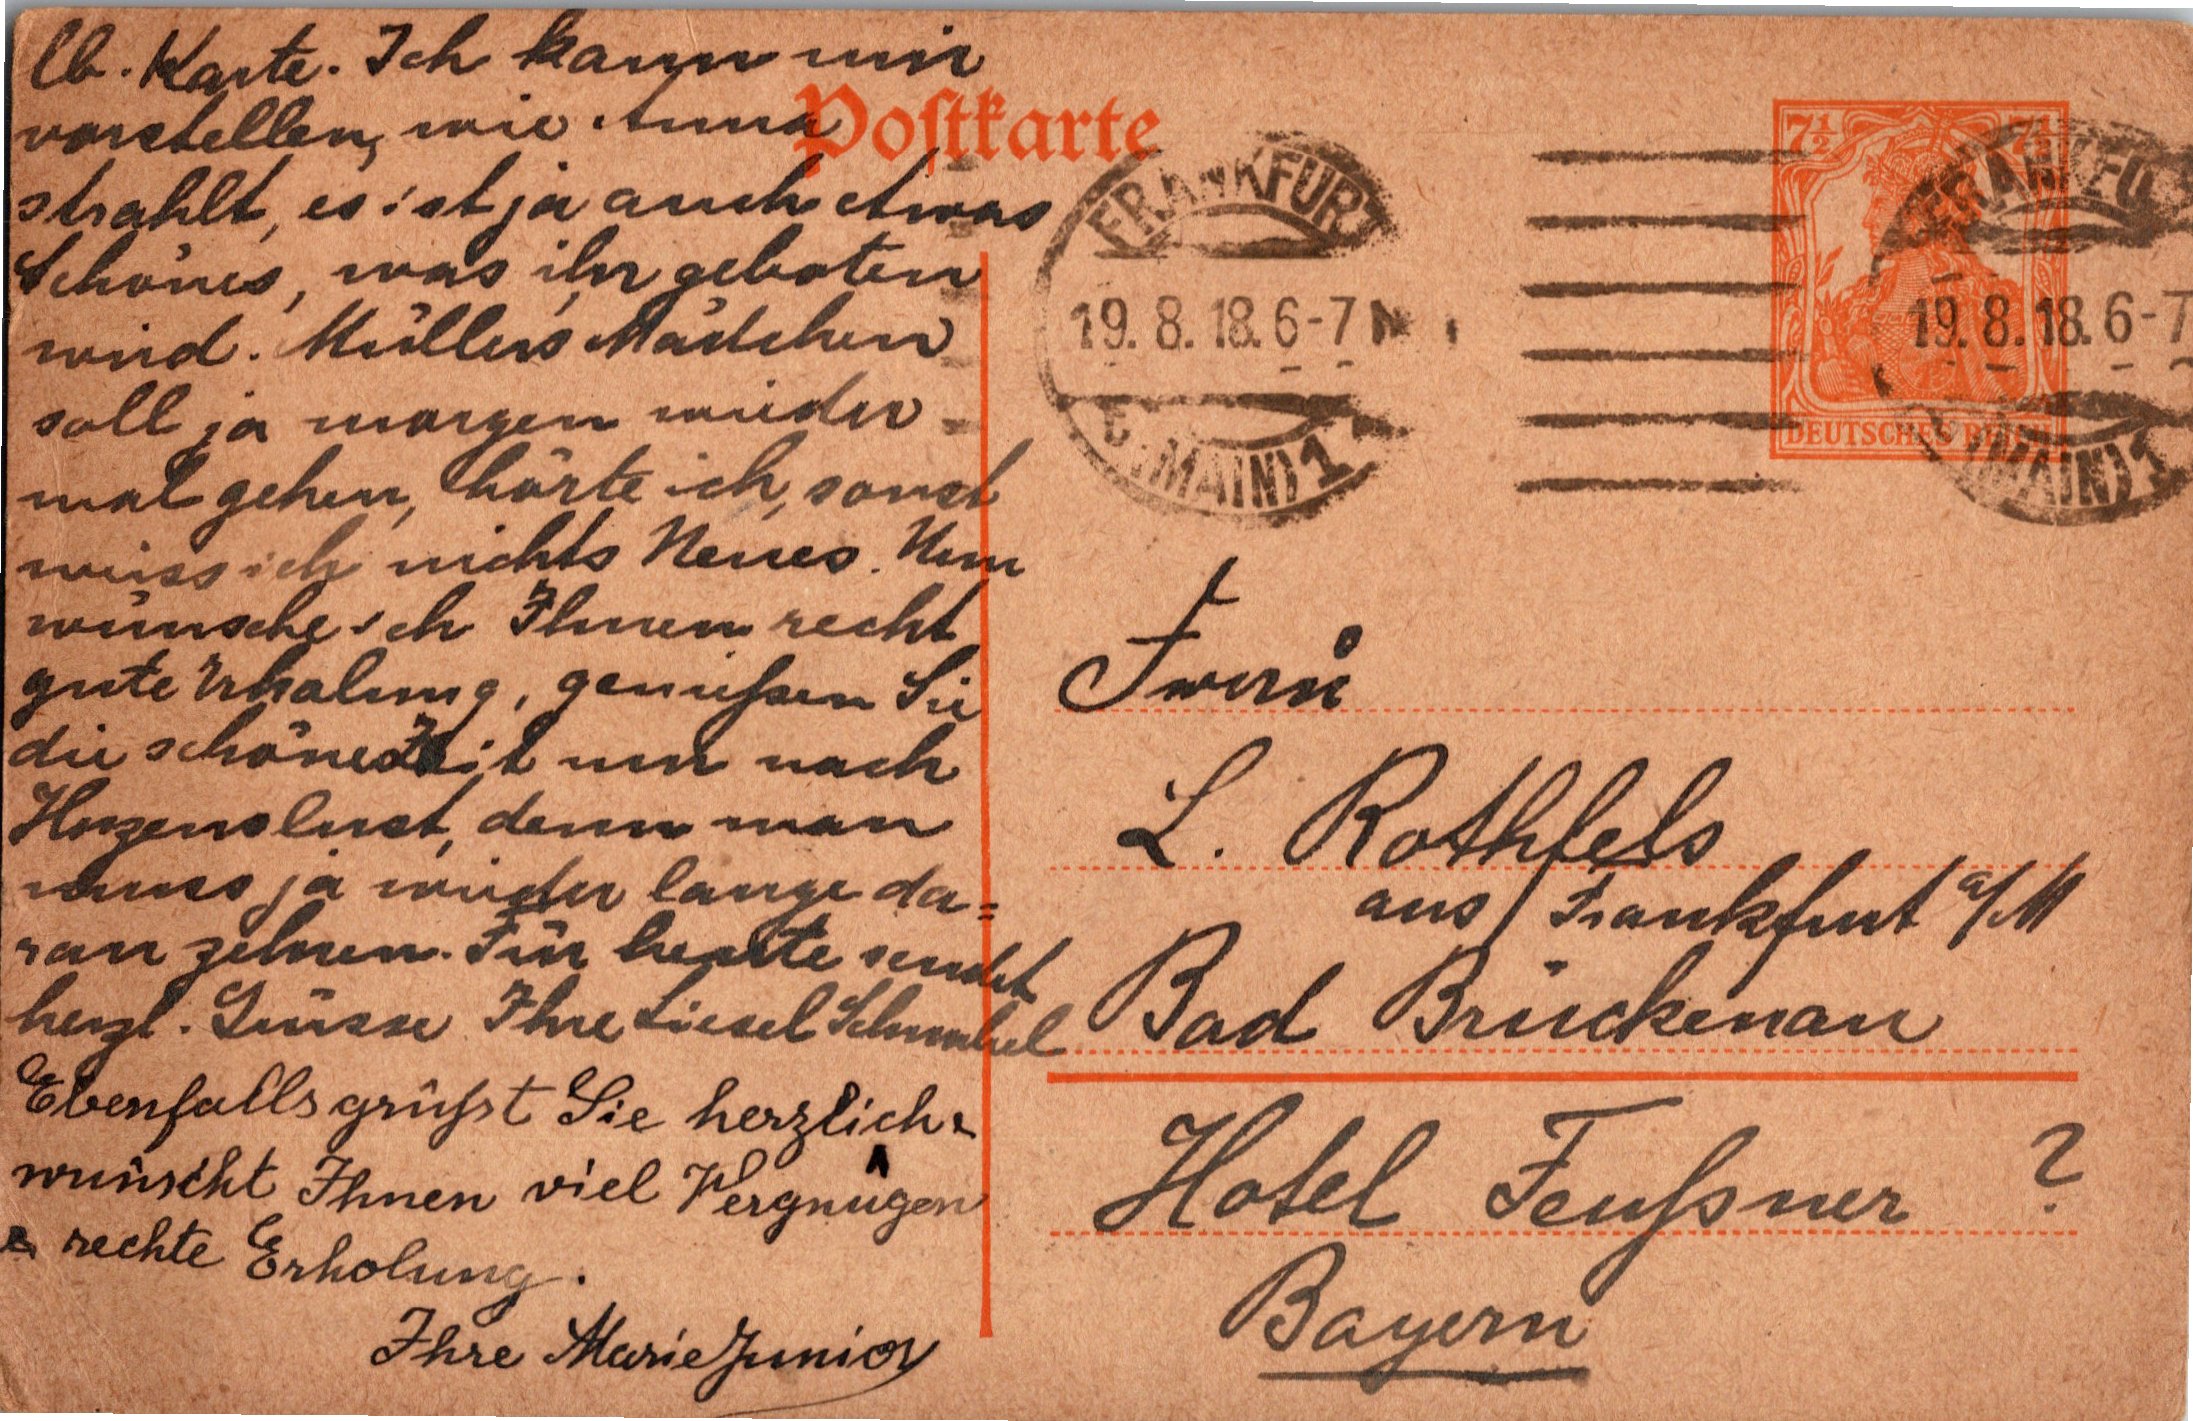 lb. Karte. Ich kann mir
vorstellen, wie Anna
strahlt, es ist ja auch etwas
Schönes, was ihr geboten
wird. Müllers Mädchen
soll ja morgen wieder
mal gehen, hörte ich, sonst
weiss ich nichts Neues. Nun
wünsche ich Ihnen recht
gute Erholung, genießen Sie
die schöne Zeit nur nach
Herzenslust, denn man
muss ja wieder lange da=
ran zehren. Für heute sendet
herzl. Grüsse Ihre Liesel Schnabel
Ebenfalls grüßt Sie herzlich &
wünscht Ihnen viel Vergnügen
& rechte Erholung.
Ihre Marie Junior
Postkarte
FRANKFURT
19.8.18.6-7N
(MAIN) 1
7½ 7½
DEUTSCHES REICH
FRANKFU
19.8.18.6-7
(MAIN) 1
Frau
L. Rothfels
aus Frankfurt a/M
Bad Brückenau
Hotel Feußner ?
Bayern